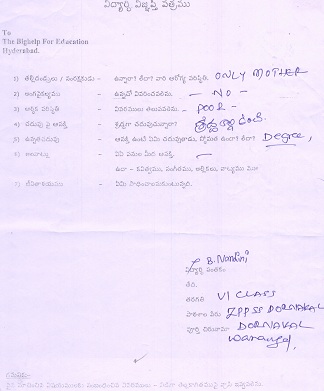 విద్యార్థి విజ్ఞప్తి పత్రము
To
The Bighelp For Education
Hyderabad.
1) తల్లిదండ్రులు / సంరక్షకుడు - ఉన్నారా? లేదా? వారి ఆరోగ్య పరిస్థితి. ONLY MOTHER
2) అంగవైకల్యము - ఉన్నచో వివరించవలెను. - NO -
3) ఆర్థిక పరిస్థితి - వివరములు తెలుపవలెను. - POOR -
4) చదువు పై ఆసక్తి - శ్రద్ధగా చదువుచున్నారా? శ్రద్ధగా ఉంది.
5) ఉన్నతచదువు - ఆసక్తి ఉంటే ఏమి చదువుతాడు, స్తోమత ఉందా? లేదా? Degree,
6) అలవాట్లు - ఏఏ పనుల మీద ఆసక్తి. -
ఉదా - కవిత్వము, సంగీతము, ఆర్టికలు,
7) జీవితాశయము - ఏమి సాధించాలనుకుంటున్నది.
B. Nandini
విద్యార్థి సంతకం
పేరు
తరగతి VI CLASS
పాఠశాల పేరు ZPPSS DORNAKAL
పూర్తి చిరునామా DORNAKAL
Warangal,